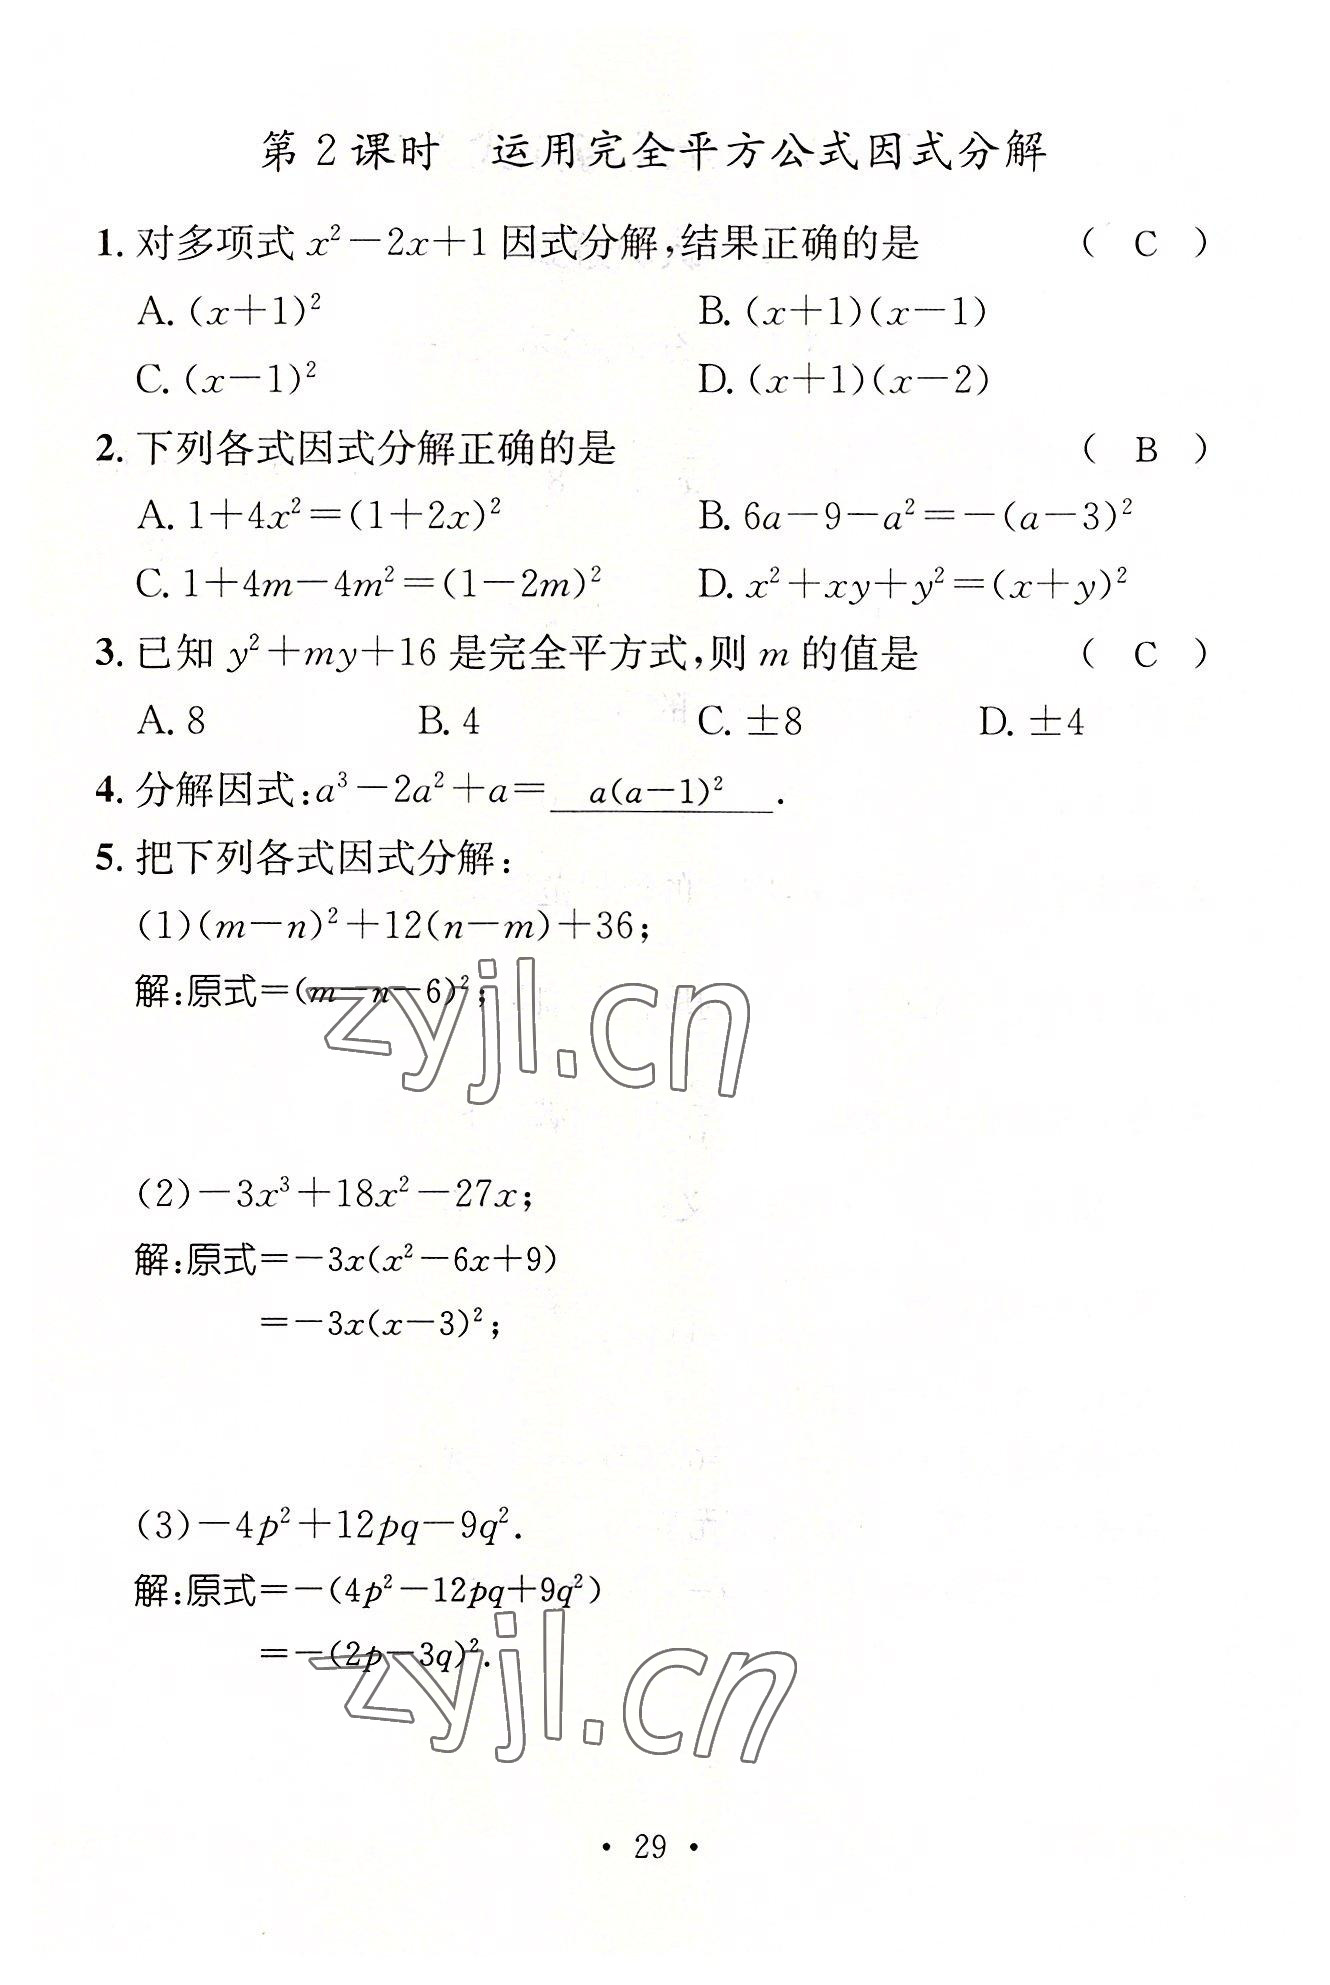 第2课时 运用完全平方公式因式分解
1. 对多项式 x²－2x＋1 因式分解,结果正确的是 ( C )
A. (x＋1)² B. (x＋1)(x－1)
C. (x－1)² D. (x＋1)(x－2)
2. 下列各式因式分解正确的是 ( B )
A. 1＋4x²＝(1＋2x)² B. 6a－9－a²＝－(a－3)²
C. 1＋4m－4m²＝(1－2m)² D. x²＋xy＋y²＝(x＋y)²
3. 已知 y²＋my＋16 是完全平方式,则 m 的值是 ( C )
A. 8 B. 4 C. ±8 D. ±4
4. 分解因式:a³－2a²＋a＝ a(a－1)² .
5. 把下列各式因式分解:
(1)(m－n)²＋12(n－m)＋36;
解:原式＝(m－n－6)²;
zyjl.cn
(2)－3x³＋18x²－27x;
解:原式＝－3x(x²－6x＋9)
＝－3x(x－3)²;
(3)－4p²＋12pq－9q².
解:原式＝－(4p²－12pq＋9q²)
＝－(2p－3q)².
zyjl.cn
· 29 ·